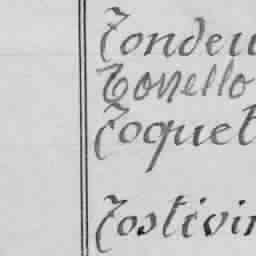 Tondeu
Tonello
Toquet
Tostivin